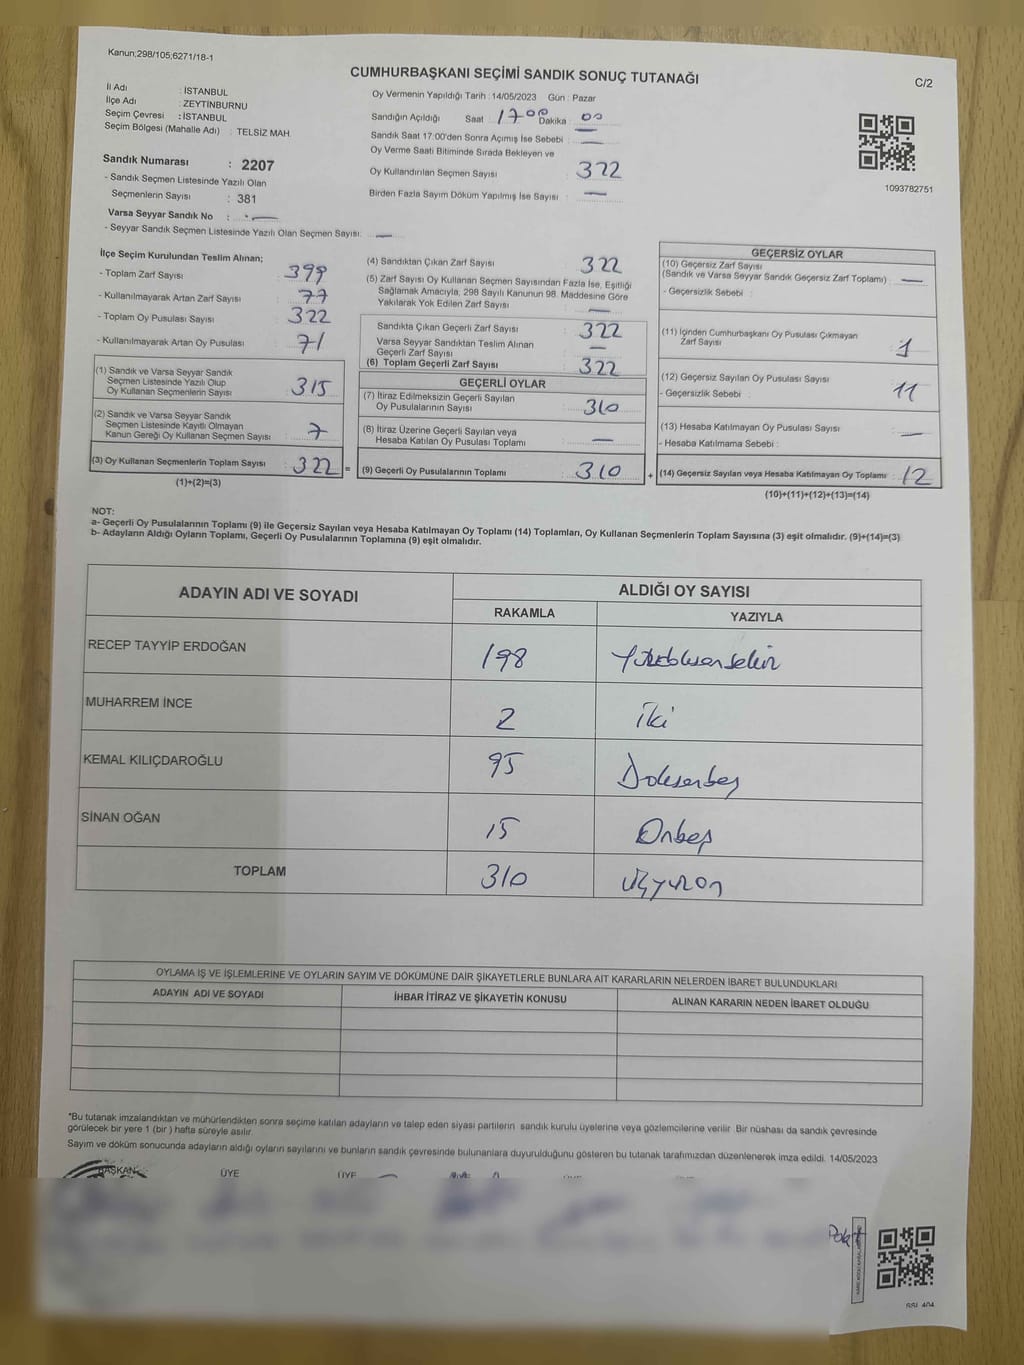 Kanun;298/105;6271/18-1
CUMHURBAŞKANI SEÇİMİ SANDIK SONUÇ TUTANAĞI
C/2
İl Adı : İSTANBUL
İlçe Adı : ZEYTİNBURNU
Seçim Çevresi : İSTANBUL
Seçim Bölgesi (Mahalle Adı) : TELSİZ MAH.
Sandık Numarası : 2207
- Sandık Seçmen Listesinde Yazılı Olan
Seçmenlerin Sayısı : 381
Varsa Seyyar Sandık No : —
- Seyyar Sandık Seçmen Listesinde Yazılı Olan Seçmen Sayısı: —
Oy Vermenin Yapıldığı Tarih : 14/05/2023 Gün : Pazar
Sandığın Açıldığı Saat : 17:00 Dakika : 00
Sandık Saat 17:00'den Sonra Açımış İse Sebebi : —
Oy Verme Saati Bitiminde Sırada Bekleyen ve
Oy Kullandırılan Seçmen Sayısı : 322
Birden Fazla Sayım Döküm Yapılmış İse Sayısı : —
1093782751
İlçe Seçim Kurulundan Teslim Alınan;
- Toplam Zarf Sayısı : 399
- Kullanılmayarak Artan Zarf Sayısı : 77
- Toplam Oy Pusulası Sayısı : 322
- Kullanılmayarak Artan Oy Pusulası : 71
(1) Sandık ve Varsa Seyyar Sandık
Seçmen Listesinde Yazılı Olup
Oy Kullanan Seçmenlerin Sayısı : 315
(2) Sandık ve Varsa Seyyar Sandık
Seçmen Listesinde Kayıtlı Olmayan
Kanun Gereği Oy Kullanan Seçmen Sayısı : 7
(3) Oy Kullanan Seçmenlerin Toplam Sayısı : 322 =
(1)+(2)=(3)
(4) Sandıktan Çıkan Zarf Sayısı : 322
(5) Zarf Sayısı Oy Kullanan Seçmen Sayısından Fazla İse, Eşitliği
Sağlamak Amacıyla, 298 Sayılı Kanunun 98. Maddesine Göre
Yakılarak Yok Edilen Zarf Sayısı : —
Sandıkta Çıkan Geçerli Zarf Sayısı : 322
Varsa Seyyar Sandıktan Teslim Alınan
Geçerli Zarf Sayısı : —
(6) Toplam Geçerli Zarf Sayısı : 322
GEÇERLİ OYLAR
(7) İtiraz Edilmeksizin Geçerli Sayılan
Oy Pusulalarının Sayısı : 310
(8) İtiraz Üzerine Geçerli Sayılan veya
Hesaba Katılan Oy Pusulası Toplamı : —
(9) Geçerli Oy Pusulalarının Toplamı : 310 +
GEÇERSİZ OYLAR
(10) Geçersiz Zarf Sayısı
(Sandık ve Varsa Seyyar Sandık Geçersiz Zarf Toplamı) : —
- Geçersizlik Sebebi :
(11) İçinden Cumhurbaşkanı Oy Pusulası Çıkmayan
Zarf Sayısı : 1
(12) Geçersiz Sayılan Oy Pusulası Sayısı : 11
- Geçersizlik Sebebi :
(13) Hesaba Katılmayan Oy Pusulası Sayısı : —
- Hesaba Katılmama Sebebi :
(14) Geçersiz Sayılan veya Hesaba Katılmayan Oy Toplamı : 12
(10)+(11)+(12)+(13)=(14)
NOT:
a- Geçerli Oy Pusulalarının Toplamı (9) ile Geçersiz Sayılan veya Hesaba Katılmayan Oy Toplamı (14) Toplamları, Oy Kullanan Seçmenlerin Toplam Sayısına (3) eşit olmalıdır. (9)+(14)=(3)
b- Adayların Aldığı Oyların Toplamı, Geçerli Oy Pusulalarının Toplamına (9) eşit olmalıdır.
ADAYIN ADI VE SOYADI
ALDIĞI OY SAYISI
RAKAMLA YAZIYLA
RECEP TAYYİP ERDOĞAN 198
MUHARREM İNCE 2 iki
KEMAL KILIÇDAROĞLU 95 Doksanbeş
SİNAN OĞAN 15 Onbeş
TOPLAM 310 üçyüzon
OYLAMA İŞ VE İŞLEMLERİNE VE OYLARIN SAYIM VE DÖKÜMÜNE DAİR ŞİKAYETLERLE BUNLARA AİT KARARLARIN NELERDEN İBARET BULUNDUKLARI
ADAYIN ADI VE SOYADI İHBAR İTİRAZ VE ŞİKAYETİN KONUSU ALINAN KARARIN NEDEN İBARET OLDUĞU
*Bu tutanak imzalandıktan ve mühürlendikten sonra seçime katılan adayların ve talep eden siyasi partilerin sandık kurulu üyelerine veya gözlemcilerine verilir. Bir nüshası da sandık çevresinde
görülecek bir yere 1 (bir ) hafta süreyle asılır.
Sayım ve döküm sonucunda adayların aldığı oyların sayılarını ve bunların sandık çevresinde bulunanlara duyurulduğunu gösteren bu tutanak tarafımızdan düzenlenerek imza edildi. 14/05/2023
BAŞKAN ÜYE ÜYE